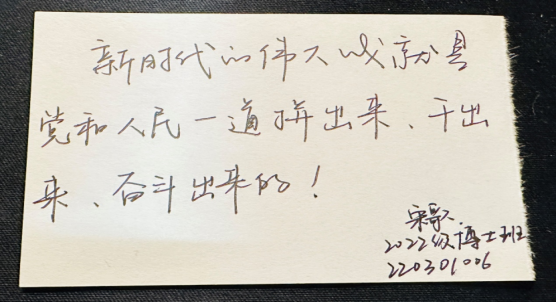 新时代的伟大成就是
党和人民一道拼出来、干出
来、奋斗出来的！
宋歌
2022级博士班
220301006